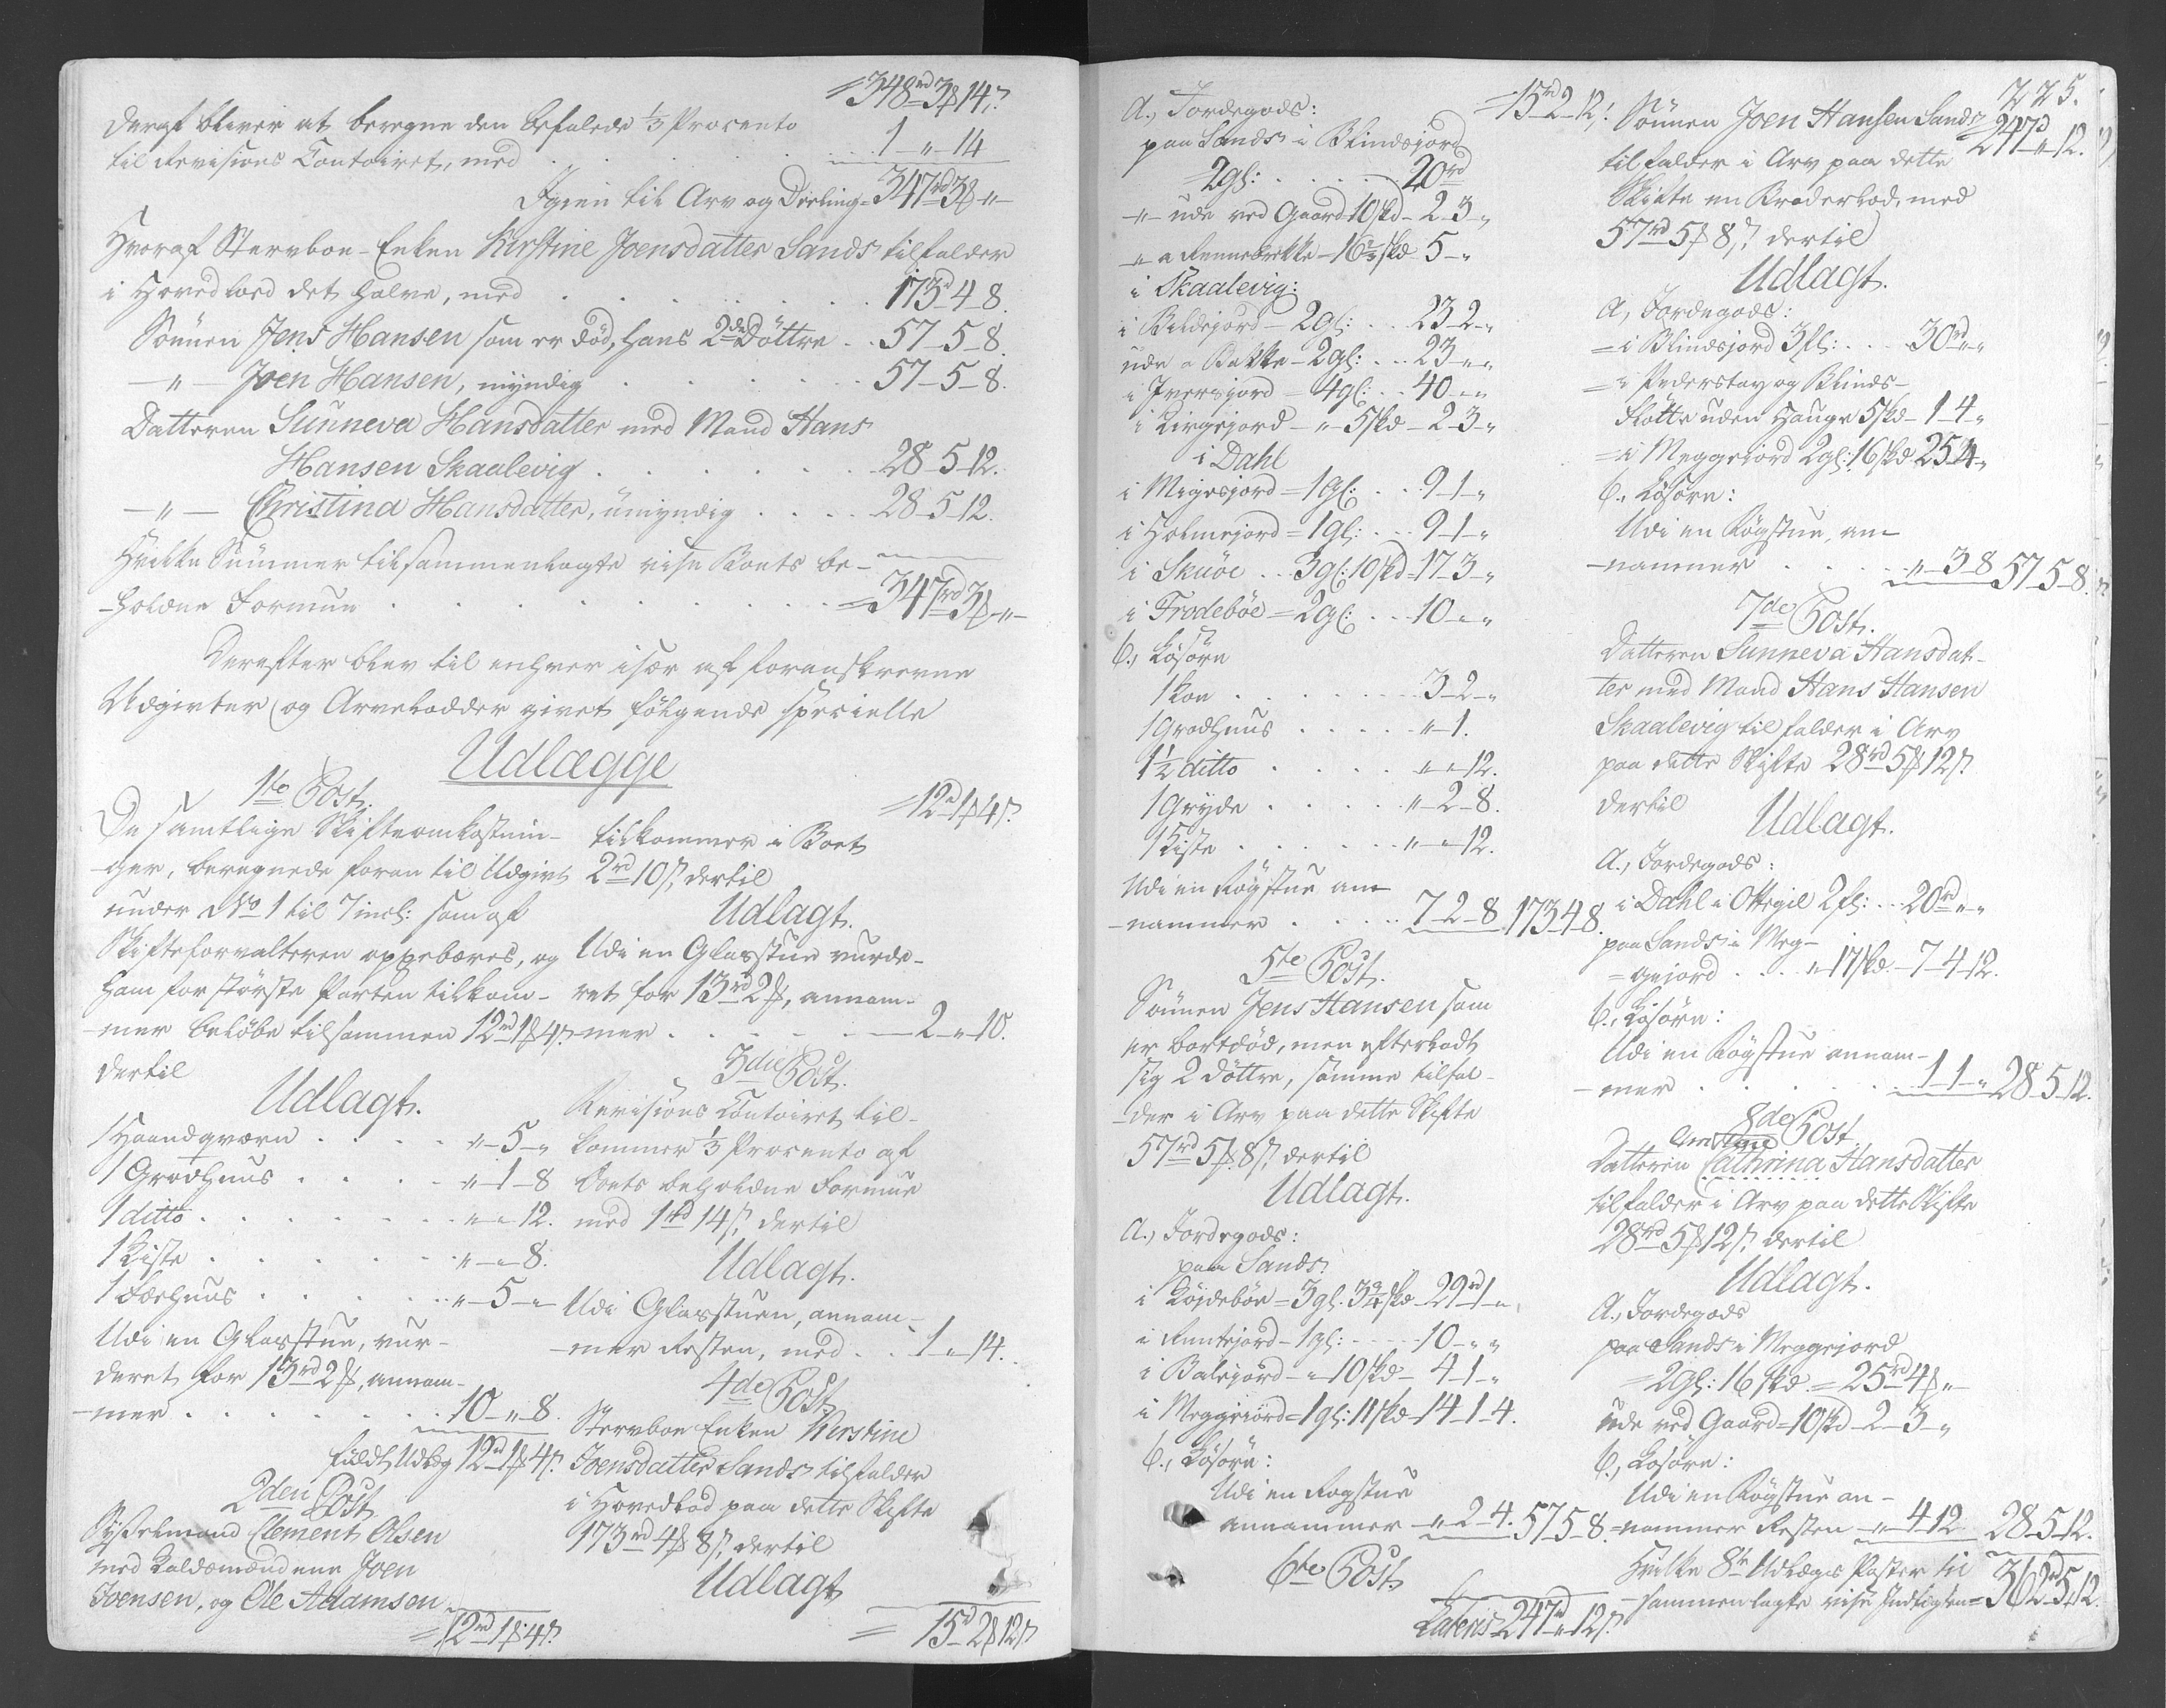 = 348rd 3ß 14s.
Deraf bliver at beregne den befalede 1/3 Procento
til Revisions Contoiret, med . . . 1 - " - 14
Igien til Arv og Deeling = 347rd 3ß "
Hvoraf Stervboe-Enken Kirstine Joensdatter Sands tilfalder
i Hovedlod det halve, med . . . 173 - 4 - 8.
Sønnen Jens Hansen som er død, hans 2de Døttre . . 57 - 5 - 8.
- " - Joen Hansen, myndig . . . 57 - 5 - 8.
Datteren Sunneva Hansdatter med Mand Hans
Hansen Skaalevig . . . 28 - 5 - 12.
- " - Christina Hansdatter, umyndig . . . 28 - 5 - 12.
Hvilke Summer tilsammenlagte vise Boets be-
-holdne Formue . . . = 347rd 3ß "
Derefter blev til enhver især af foranskrevne
Udgivter og Arvelodder givet følgende specielle
Udlægge
1te Post.
De samtlige Skifteomkostnin-
ger, beregnede foran til Udgivt
under No 1 til 7 incl: som af
Skifteforvalteren oppebæres, og
ham for største Parten tilkom-
-mer beløbe tilsammen 12rd 1ß 4s.
dertil
Udlagt.
1 Haandqværn . . . " - 5 - "
1 Grødhuus . . . " - 1 - 8
1 ditto . . . " - " - 12.
1 Kiste . . . " - " - 8.
1 Fæehuus . . . " - 5 - "
Udi en Glasstue, vur-
deret for 13rd 2ß, annam-
-mer . . . 10 - " - 8.
fuldt Udlæg 12rd 1ß 4s.
2den Post
Sysselmand Clement Olsen
med Laldsmændene Joen
Joensen, og Ole Adamsen
= 12rd 1ß 4s.
= 12rd 1ß 4s.
tilkommer i Boet
2rd 10s, dertil
Udlagt.
Udi en Glasstue vurde-
ret for 13rd 2ß, annam-
-mer . . . 2 - " - 10.
3die Post.
Revisions Contoiret til-
kommer 1/3 Procento af
Boets beholdne Formue
med 1rd 14s, dertil
Udlagt.
Udi Glasstuen, annam-
-mer Resten, med . . 1 - " - 14.
4de Post
Stervboe Enken Kirstine
Joensdatter Sands tilfalder
i Hovedlod paa dette Skifte
173rd 4ß 8s, dertil
Udlagt
= 15rd 2ß 12s
= 15rd 2 - 12.
A., Jordegods:
paa Sands i Blindsjord
2gl: . . . 20rd
- " - ude ved Gaard 10skd - 2 - 3 - "
i Skaalevig:
i Bildejord - 2gl: . . 23 - 2 - "
ude a Bakke - 2gl: . . 23 - " - "
i Iversjord = 4gl: . . 40 - " - "
i Kirgejord - " - 5skd - 2 - 3 - "
i Dahl
i Migesjord = 1gl: . . 9 - 1 - "
i Holmejord = 1gl: . . 9 - 1 - "
i Skuøe . . 3gl: 10skd = 17 - 3 - "
i Trodebøe = 2gl: . . 10 - " - "
b., Løsøre
1 Koe . . . 3 - 2 - "
1 Grødhuus . . . " - 1.
1/2 ditto . . . " - " - 12.
1 Gryde . . . " - 2 - 8.
1 Kiste . . . " - " - 12.
Udi en Røgstue an-
-nammer . . . 7 - 2 - 8 173 - 4 - 8.
5te Post.
Sønnen Jens Hansen som
er bortdød, men efterladt
sig 2 Døttre, samme tilfal-
-der i Arv paa dette Skifte
57rd 5ß 8s, dertil
Udlagt.
A., Jordegods:
paa Sands
i Køjdebøe = 3gl. 3 3/4 skd - 29rd 1 - "
i Runtejord - 1gl: . . 10 - " - "
i Balejord - " - 10skd - 4 - 1 - "
i Meggejord = 1gl: 11skd - 14 - 1 - 4.
b., Løsøre:
Udi en Røgstue
annammer - " - 2 - 4. 57 - 5 - 8.
6te Post.
Lateris 247rd " 12s.
225.
Sønnen Joen Hansen Sands = 247rd " - 12.
tilfalder i Arv paa dette
Skifte en Broderlod, med
57rd 5ß 8s, dertil
Udlagt.
A., Jordegods:
= i Blindsjord 3gl: . . . 30rd " "
= i Pederstøy og Blinds-
Slotte uden Hauge 5skd - 1 - 4 - "
= i Meggejord 2gl: 16skd 25 - 4 - "
b., Løsøre:
Udi en Røgstue, an-
-nammer . . . " - 3 - 8 57 - 5 - 8.
7de Post.
Datteren Sunneva Hansdat-
ter med Mand Hans Hansen
Skaalevig tilfalder i Arv
paa dette Skifte 28rd 5ß 12s.
dertil
Udlagt.
A., Jordegods:
i Dahl i Ottegil 2gl: . . 20rd " "
paa Sands i Meg-
= gejord . . . " 17skd - 7 - 4 - 12.
b., Løsøre:
Udi en Røgstue annam-
-mer . . . 1 - 1 - " 28 - 5 - 12.
8de Post
Christine
Datteren Cathrina Hansdatter
tilfalder i Arv paa dette Skifte
28rd 5ß 12s. dertil
Udlagt.
A., Jordegods
paa Sands i Meggejord
= 2gl: 16 skd = 25rd 4ß "
ude ved Gaard = 10skd - 2 - 3 - "
b., Løsøre:
Udi en Røgstue an-
=nammer Resten - " - 4 - 12 28 - 5 - 12.
Hvilke 8te Udlægs Poster til-
-sammenlagte vise Indtægten = 362rd 5 - 12.